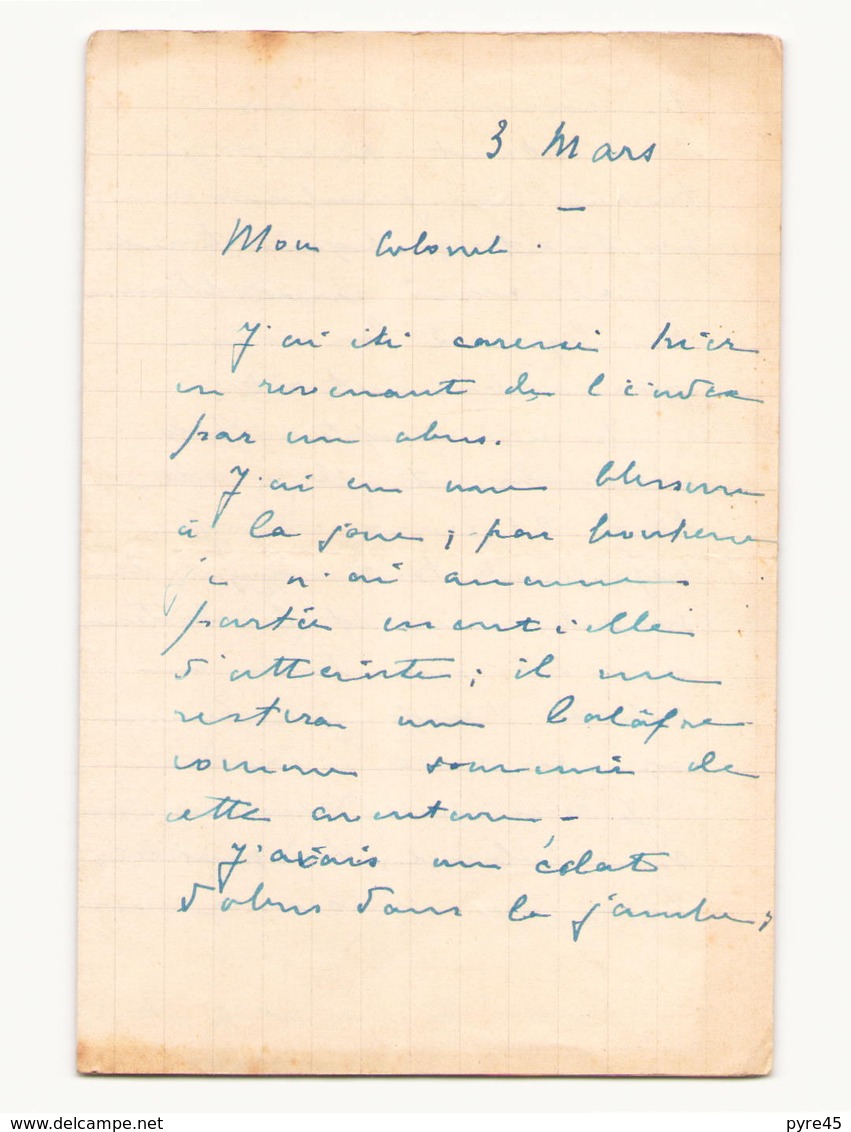 3 Mars
Mon Colonel.
J'ai été caressé hier
en revenant de
par un obus.
J'ai eu une blessure
à la joue ; par bonheur
je n'ai aucune
partie essentielle
d'atteinte ; il me
restera une balafre
comme souvenir de
cette aventure –
J'avais un éclat
d'obus dans la jambe,
www.delcampe.net
pyre45